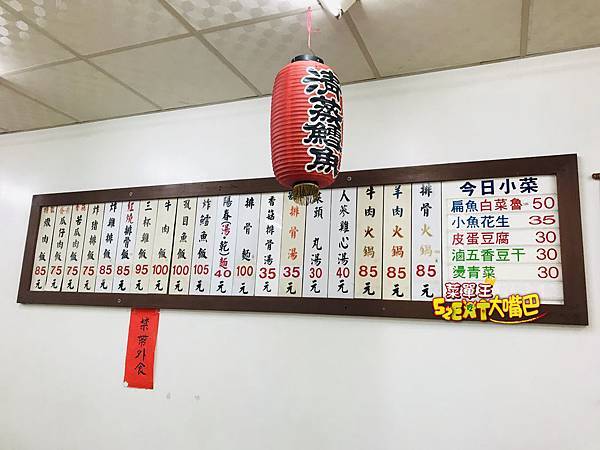 清蒸鱈魚
爌肉飯 75元
瓜仔肉飯 75元
苦瓜肉飯 75元
炸豬排飯 85元
炸雞排飯 85元
紅燒排骨飯 85元
三杯雞飯 95元
牛肉飯 100元
虱目魚飯 100元
炸鱈魚飯 105元
陽春(湯·乾)麵 40元
排骨麵 100元
香菇排骨湯 35元
排骨湯 35元
菜頭丸湯 30元
人蔘雞心湯 40元
牛肉火鍋 85元
羊肉火鍋 85元
排骨火鍋 85元
今日小菜
扁魚白菜魯 50
小魚花生 35
皮蛋豆腐 30
滷五香豆干 30
燙青菜 30
菜單王
52EAT大嘴巴
禁帶外食